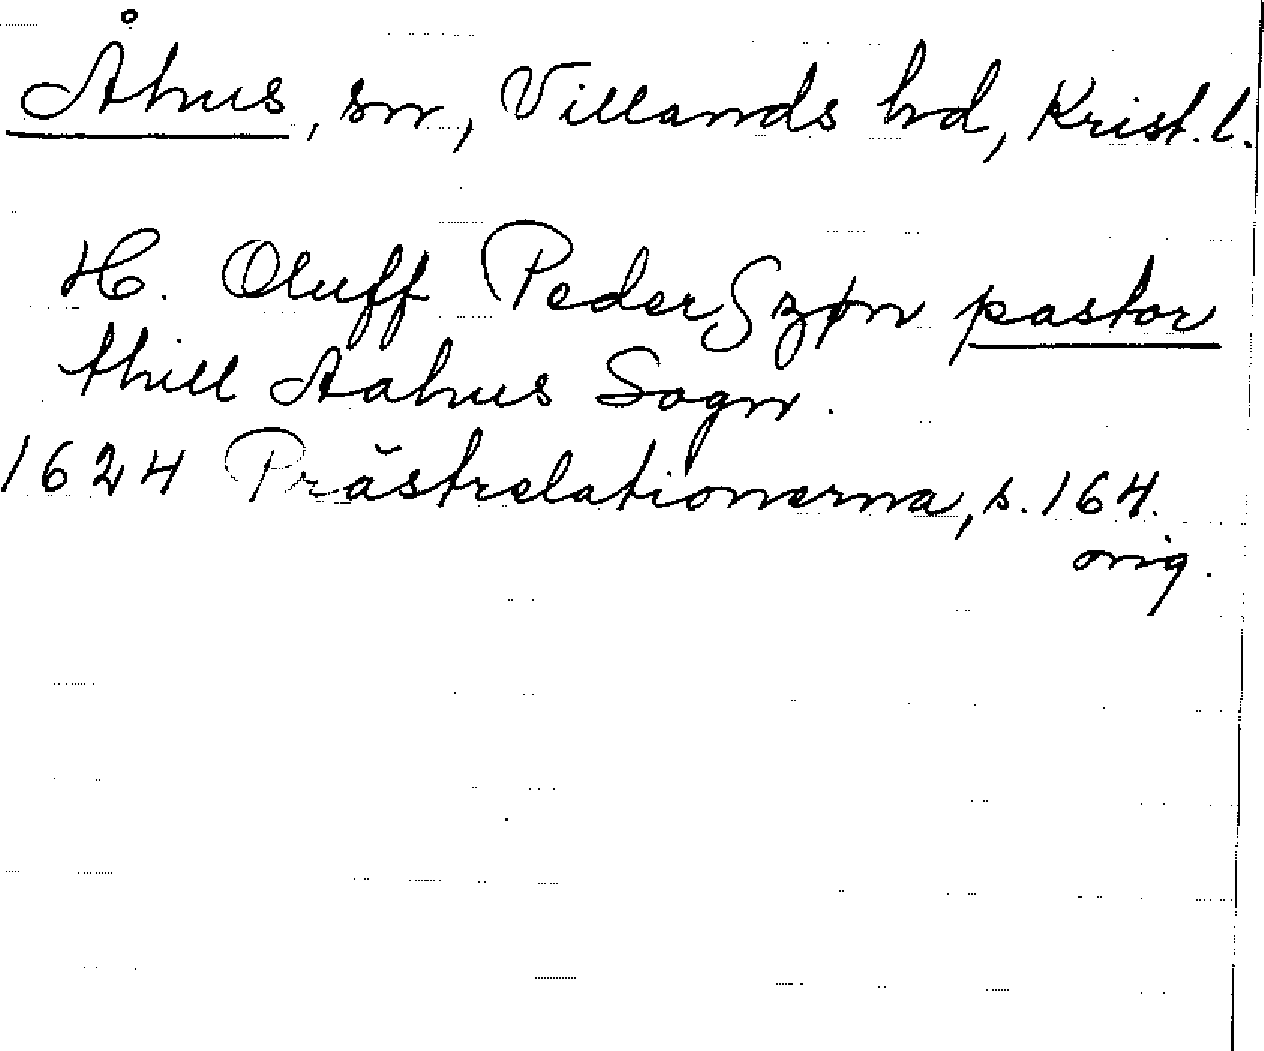 Åhus, sn, Villands hd, Krist. l.
H. Oluff Peder Szøn pastor
thill Aahus Sogn.
1624 Prästrelationerna, s. 164.
orig.